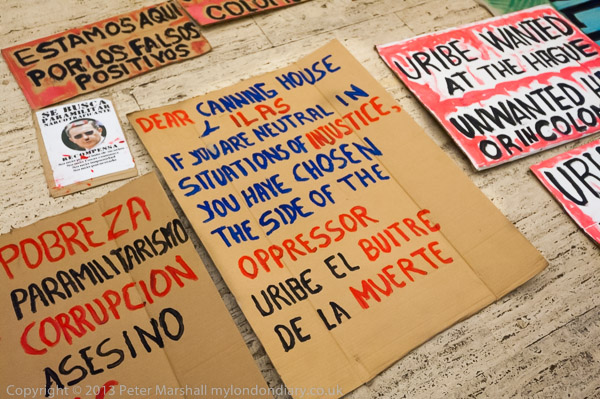 ESTAMOS AQUI
POR LOS FALSOS
POSITIVOS
COLOM
SE BUSCA
PARAMILITAR
NARCOTRAFICANTE
RECOMPENSA
DEAR CANNING HOUSE
& ILAS
IF YOU ARE NEUTRAL IN
SITUATIONS OF INJUSTICE,
YOU HAVE CHOSEN
THE SIDE OF THE
OPPRESSOR
URIBE EL BUITRE
DE LA MUERTE
URIBE WANTED
AT THE HAGUE
UNMANTED HE
OR IN COLO
URIB
POBREZA
PARAMILITARISMO
CORRUPCION
ASESINO
Copyright © 2013 Peter Marshall mylondondiary.co.uk